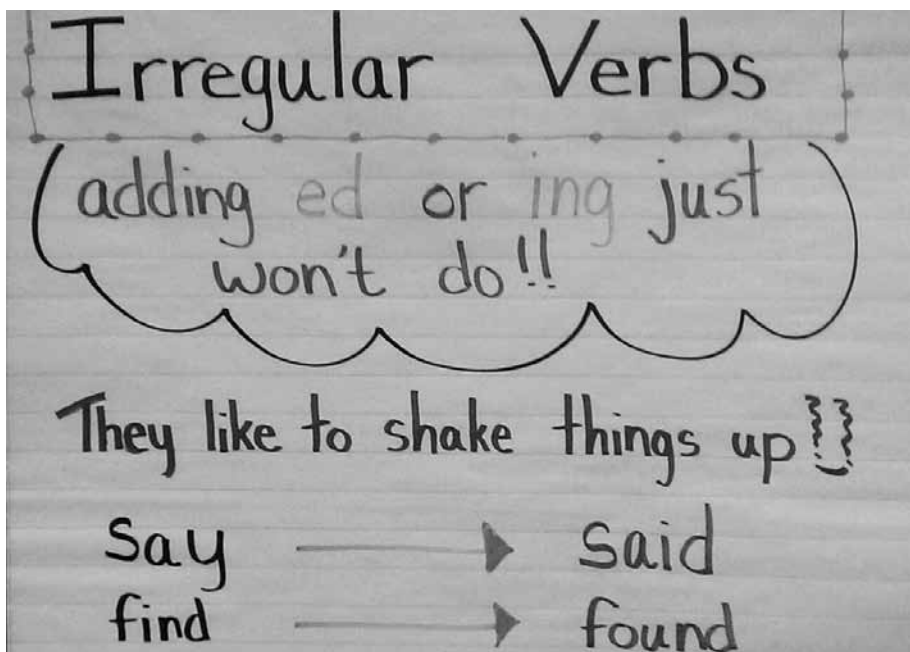 Irregular Verbs
adding ed or ing just
won't do!!
They like to shake things up!!
say → said
find → found